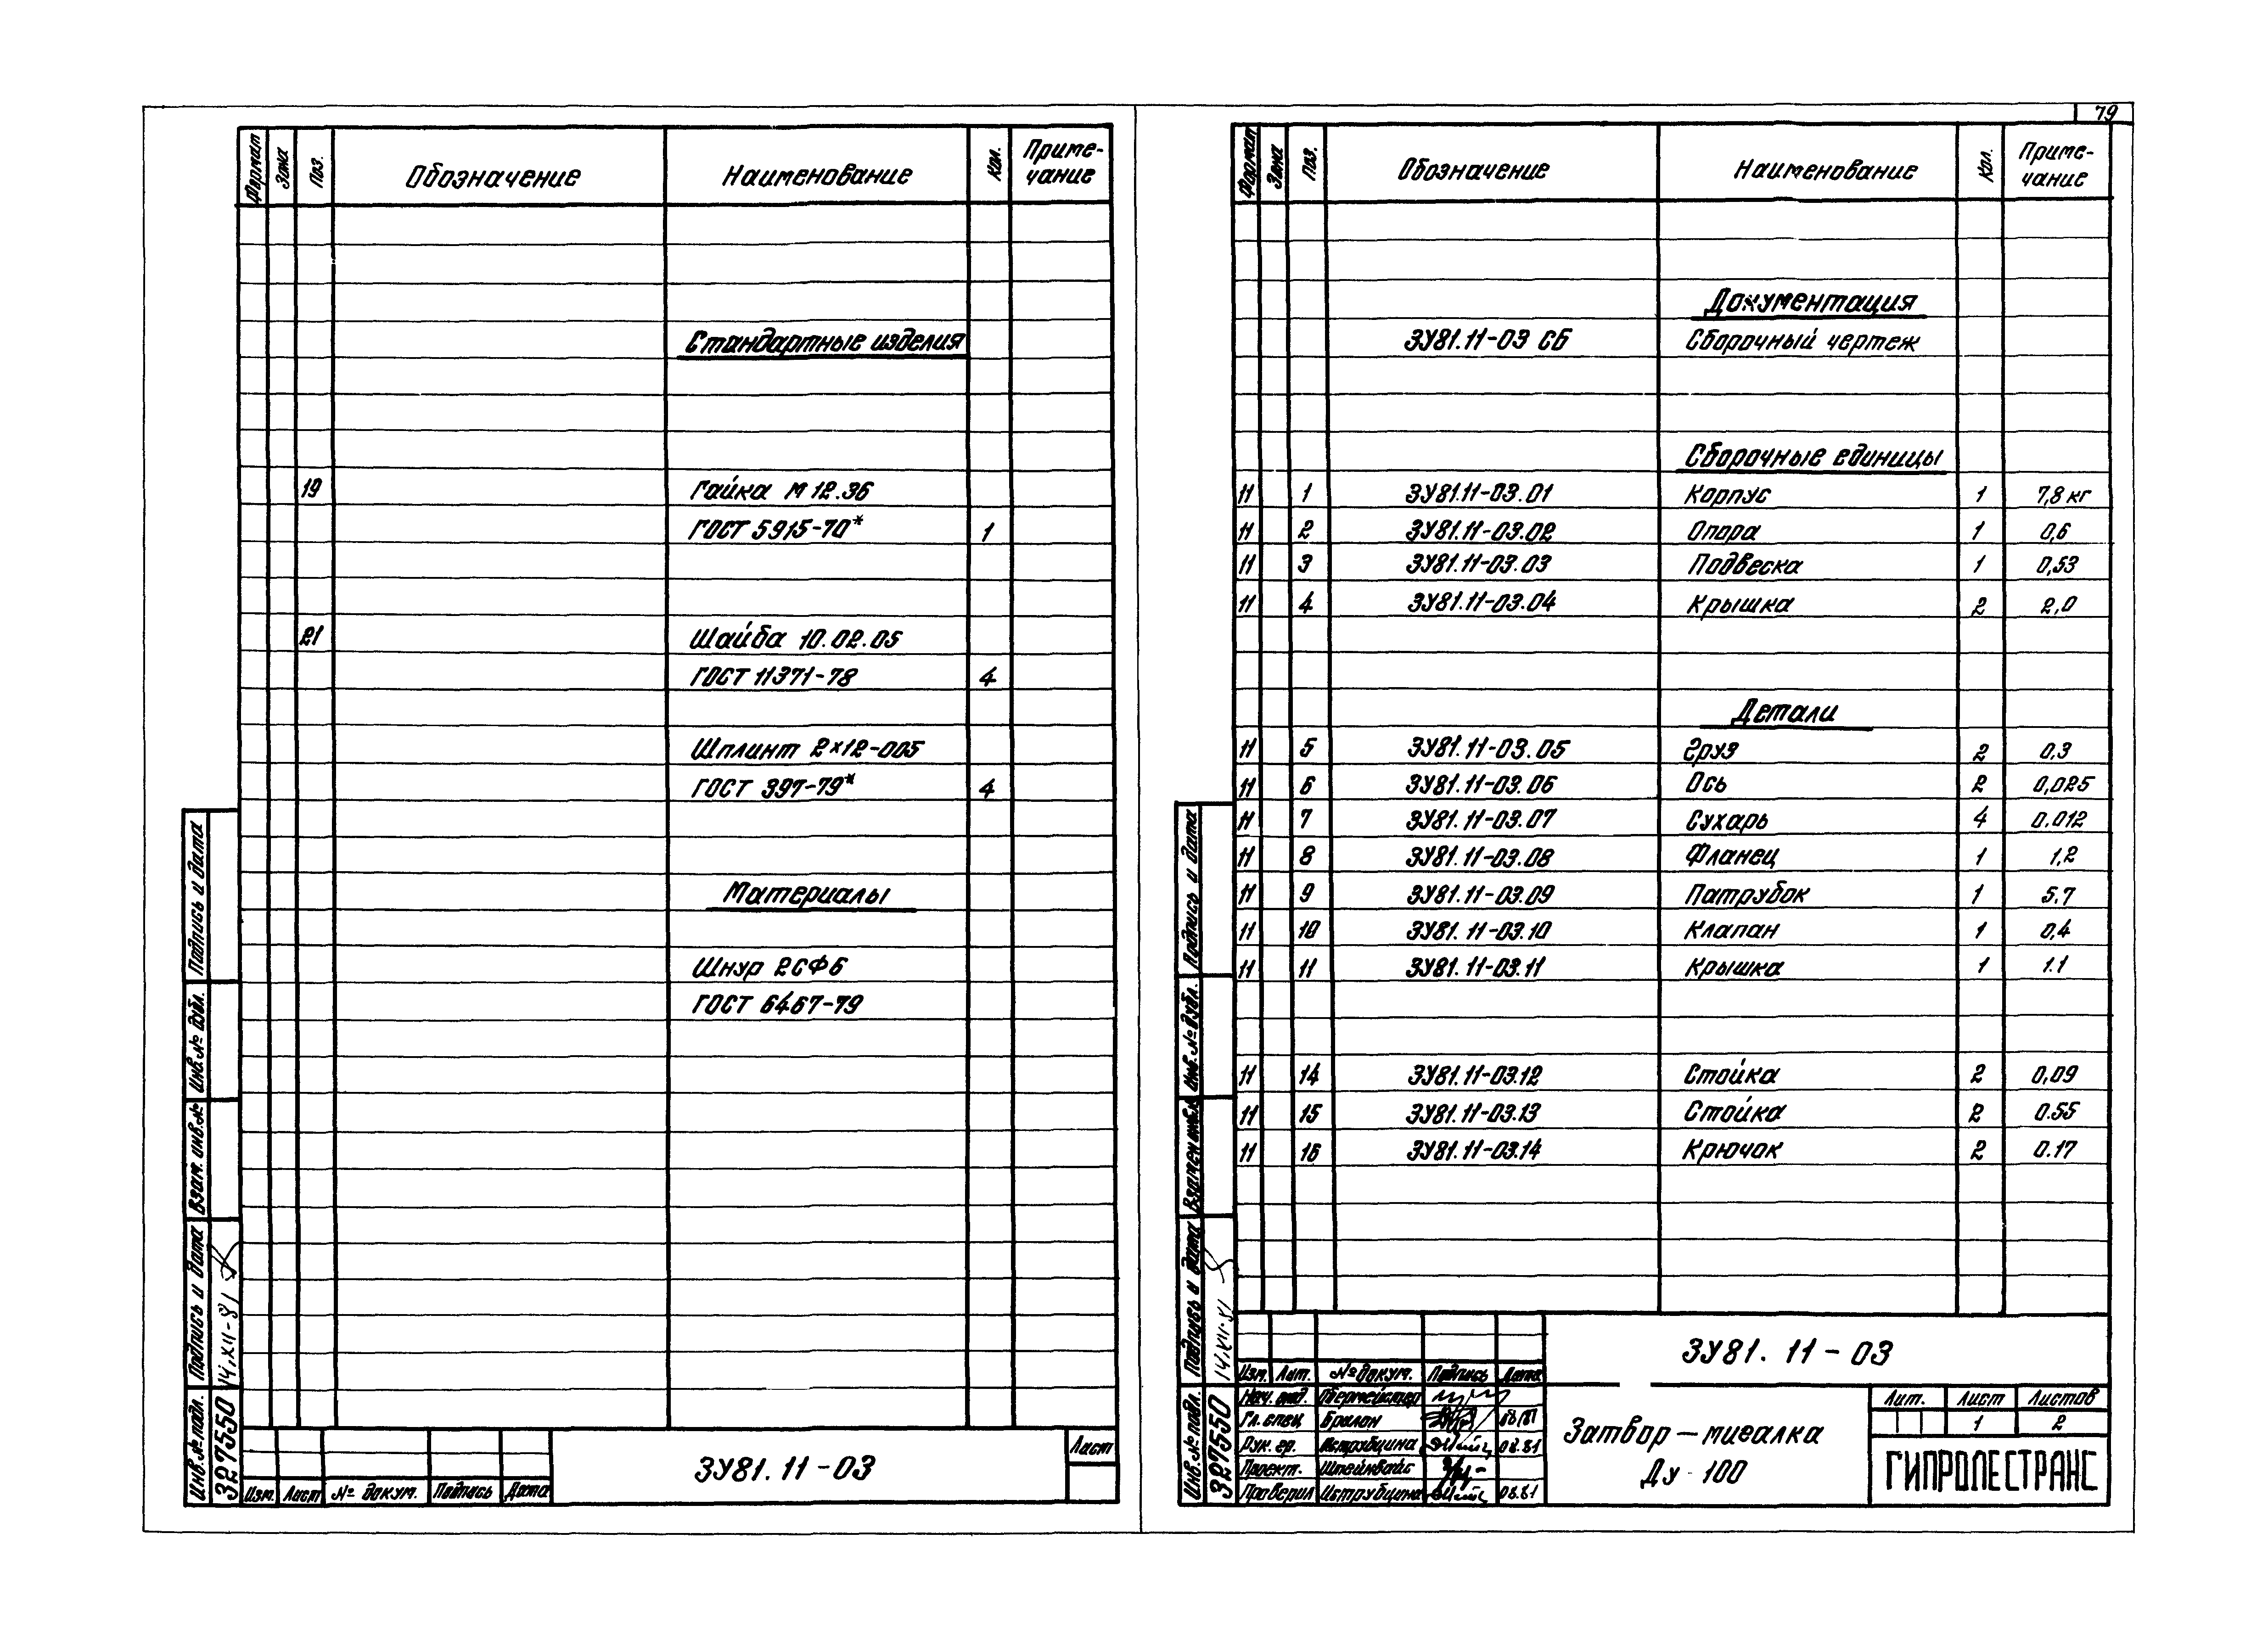 79
Формат Зона Поз. Обозначение Наименование Кол. Приме-
чание
Стандартные изделия
19 Гайка М 12.36
ГОСТ 5915-70* 1
21 Шайба 10.02.05
ГОСТ 11371-78 4
Шплинт 2×12-005
ГОСТ 397-79* 4
Материалы
Шнур 2СФ6
ГОСТ 6467-79
Подпись и дата
Инв. № дубл.
Взам. инв. №
Подпись и дата
14.XII-81
Инв. № подл.
3275550
Изм. Лист № докум. Подпись Дата
ЗУ81. 11-03
Лист
Формат Зона Поз. Обозначение Наименование Кол. Приме-
чание
Документация
ЗУ81.11-03 СБ Сборочный чертеж
Сборочные единицы
11 1 ЗУ81.11-03.01 Корпус 1 7,8 кг
11 2 ЗУ81.11-03.02 Опора 1 0,6
11 3 ЗУ81.11-03.03 Подвеска 1 0,53
11 4 ЗУ81.11-03.04 Крышка 2 2,0
Детали
11 5 ЗУ81.11-03.05 Груз 2 0,3
11 6 ЗУ81.11-03.06 Ось 2 0,025
11 7 ЗУ81.11-03.07 Сухарь 4 0.012
11 8 ЗУ81.11-03.08 Фланец 1 1,2
11 9 ЗУ81.11-03.09 Патрубок 1 5.7
11 10 ЗУ81.11-03.10 Клапан 1 0,4
11 11 ЗУ81.11-03.11 Крышка 1 1.1
11 14 ЗУ81.11-03.12 Стойка 2 0,09
11 15 ЗУ81.11-03.13 Стойка 2 0.55
11 16 ЗУ81.11-03.14 Крючок 2 0.17
Подпись и дата
Инв. № дубл.
Взамен инв. №
Подпись и дата
14.XII-81
Инв. № подл.
3275550
Изм. Лит. № докум. Подпись Дата
Нач. отд.
Гл. спец Брилон 08/81
Рук. гр. Иструбцина 08.81
Проект. Штейнвайс
Проверил Иструбцина 08.81
ЗУ81. 11-03
Затвор-мигалка
Ду 100
Лит. Лист Листов
1 2
ГИПРОЛЕСТРАНС